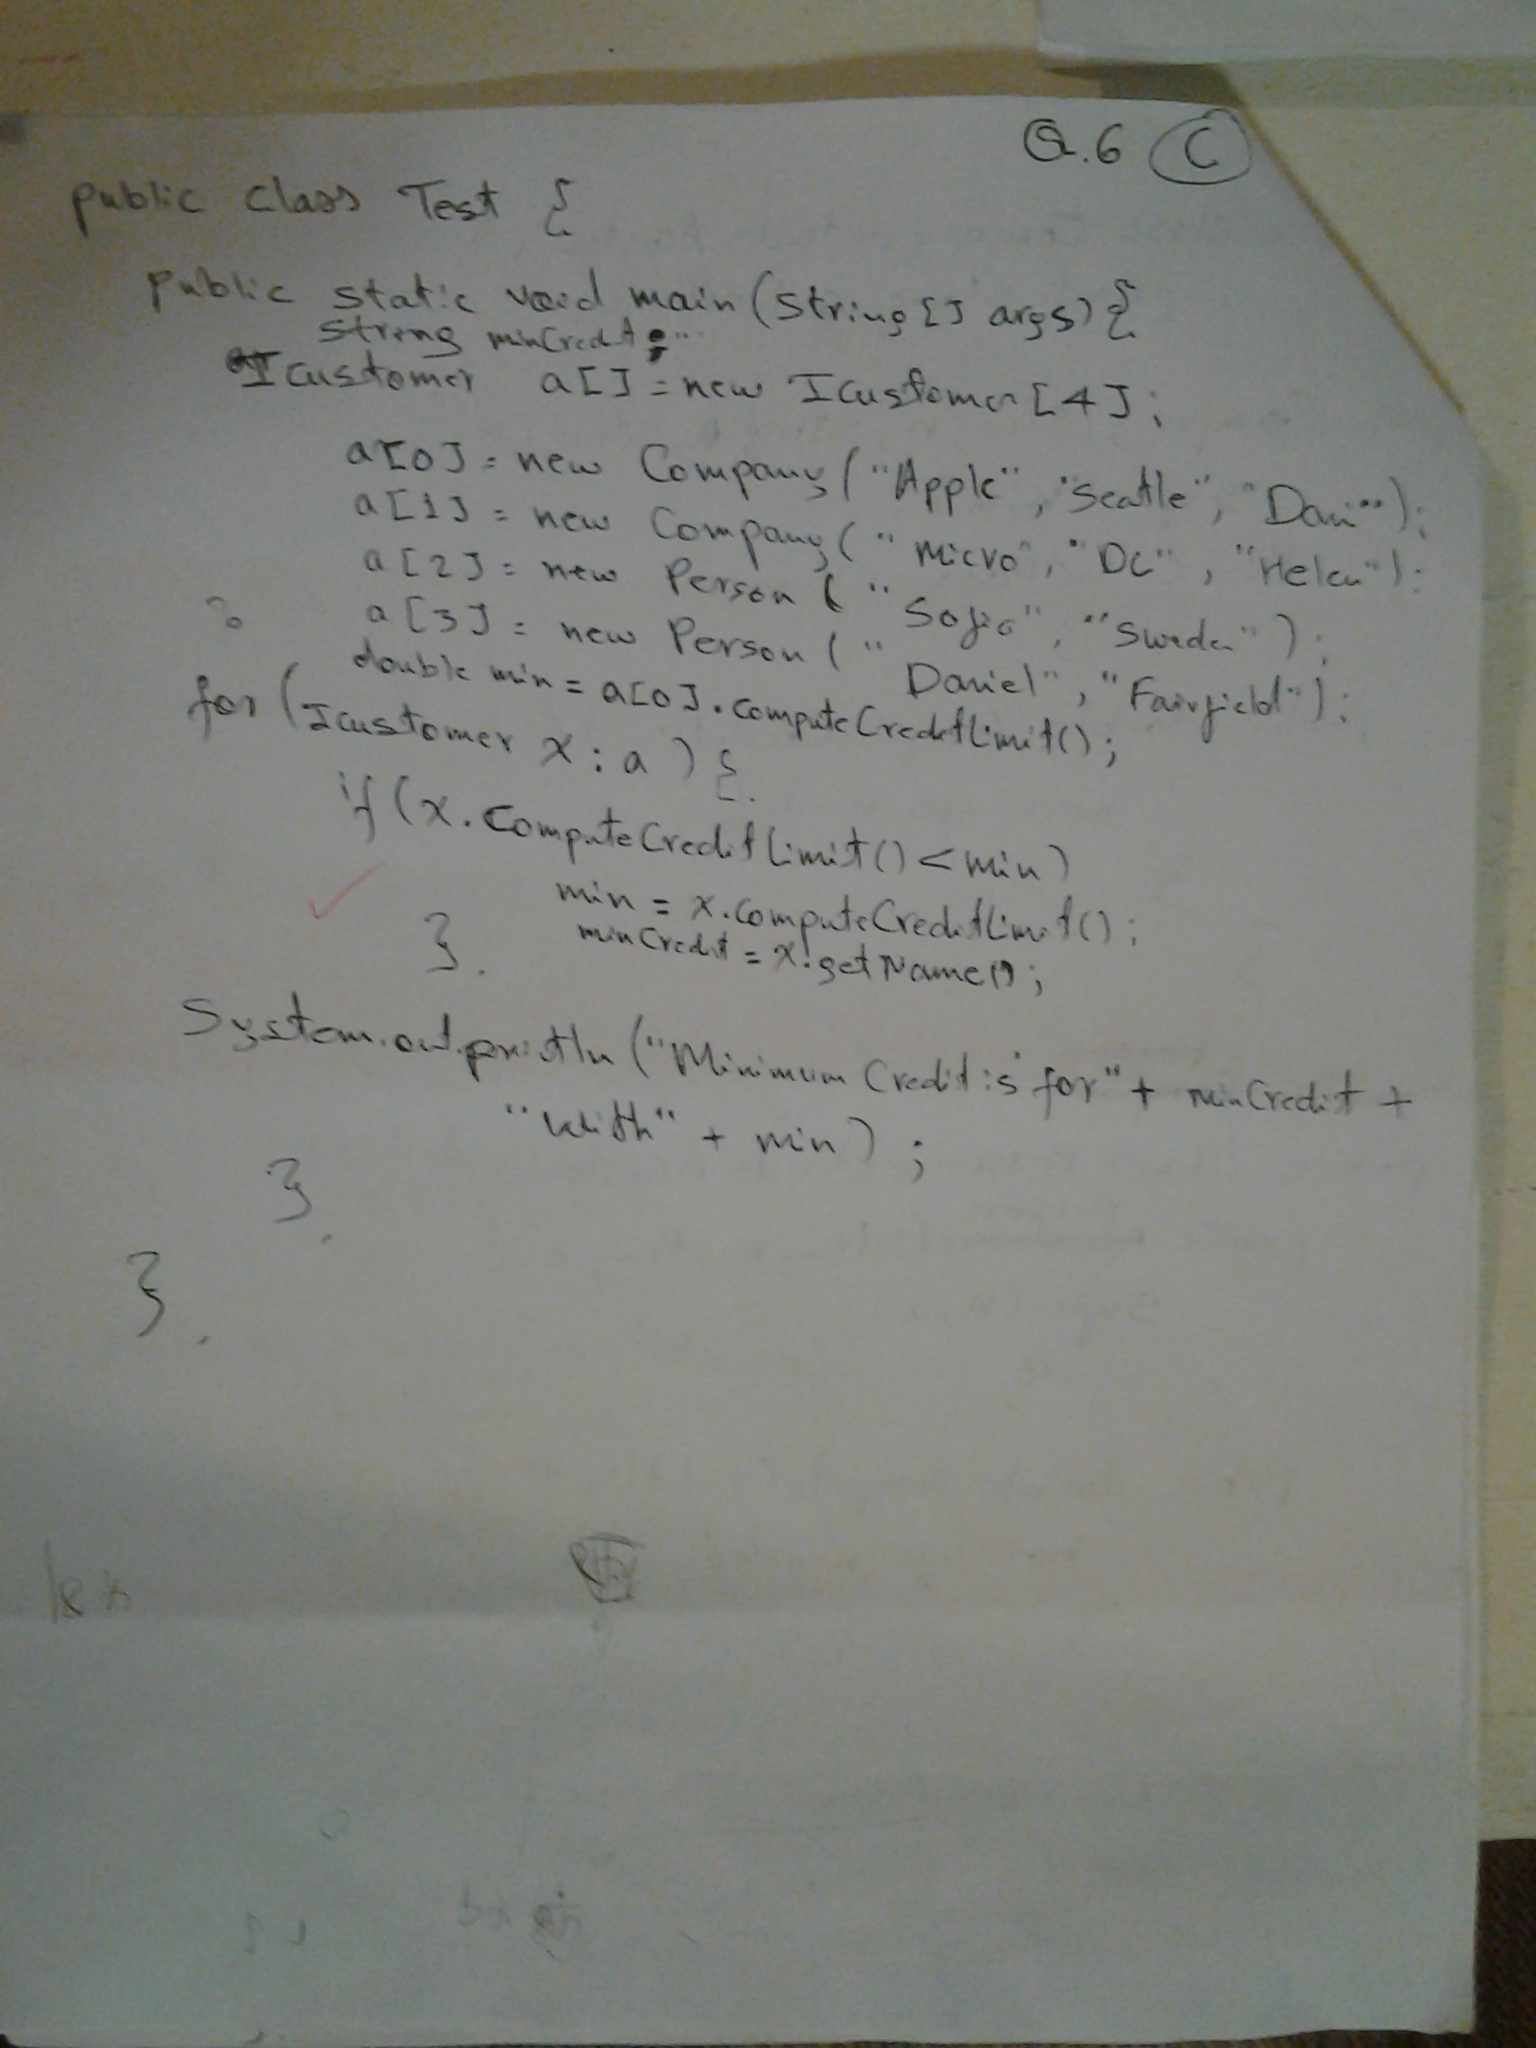 Q.6 C
public class Test {
public static void main (String [] args) {
string minCredit;
Icustomer a[] = new Icustomer [4];
a[0] = new Company ("Apple", "Seatle", "Dani");
a[1] = new Company ("Micro", "DC", "Helen");
a[2] = new Person ("Sofia", "Sweden");
a[3] = new Person ("Daniel", "Fairfield");
double min = a[0].computeCreditLimit();
for (Icustomer x : a) {
if (x.computeCreditLimit() < min)
min = x.computeCreditLimit();
minCredit = x.getName();
}
System.out.println ("Minimum Credit is for" + minCredit +
"with" + min);
}
}